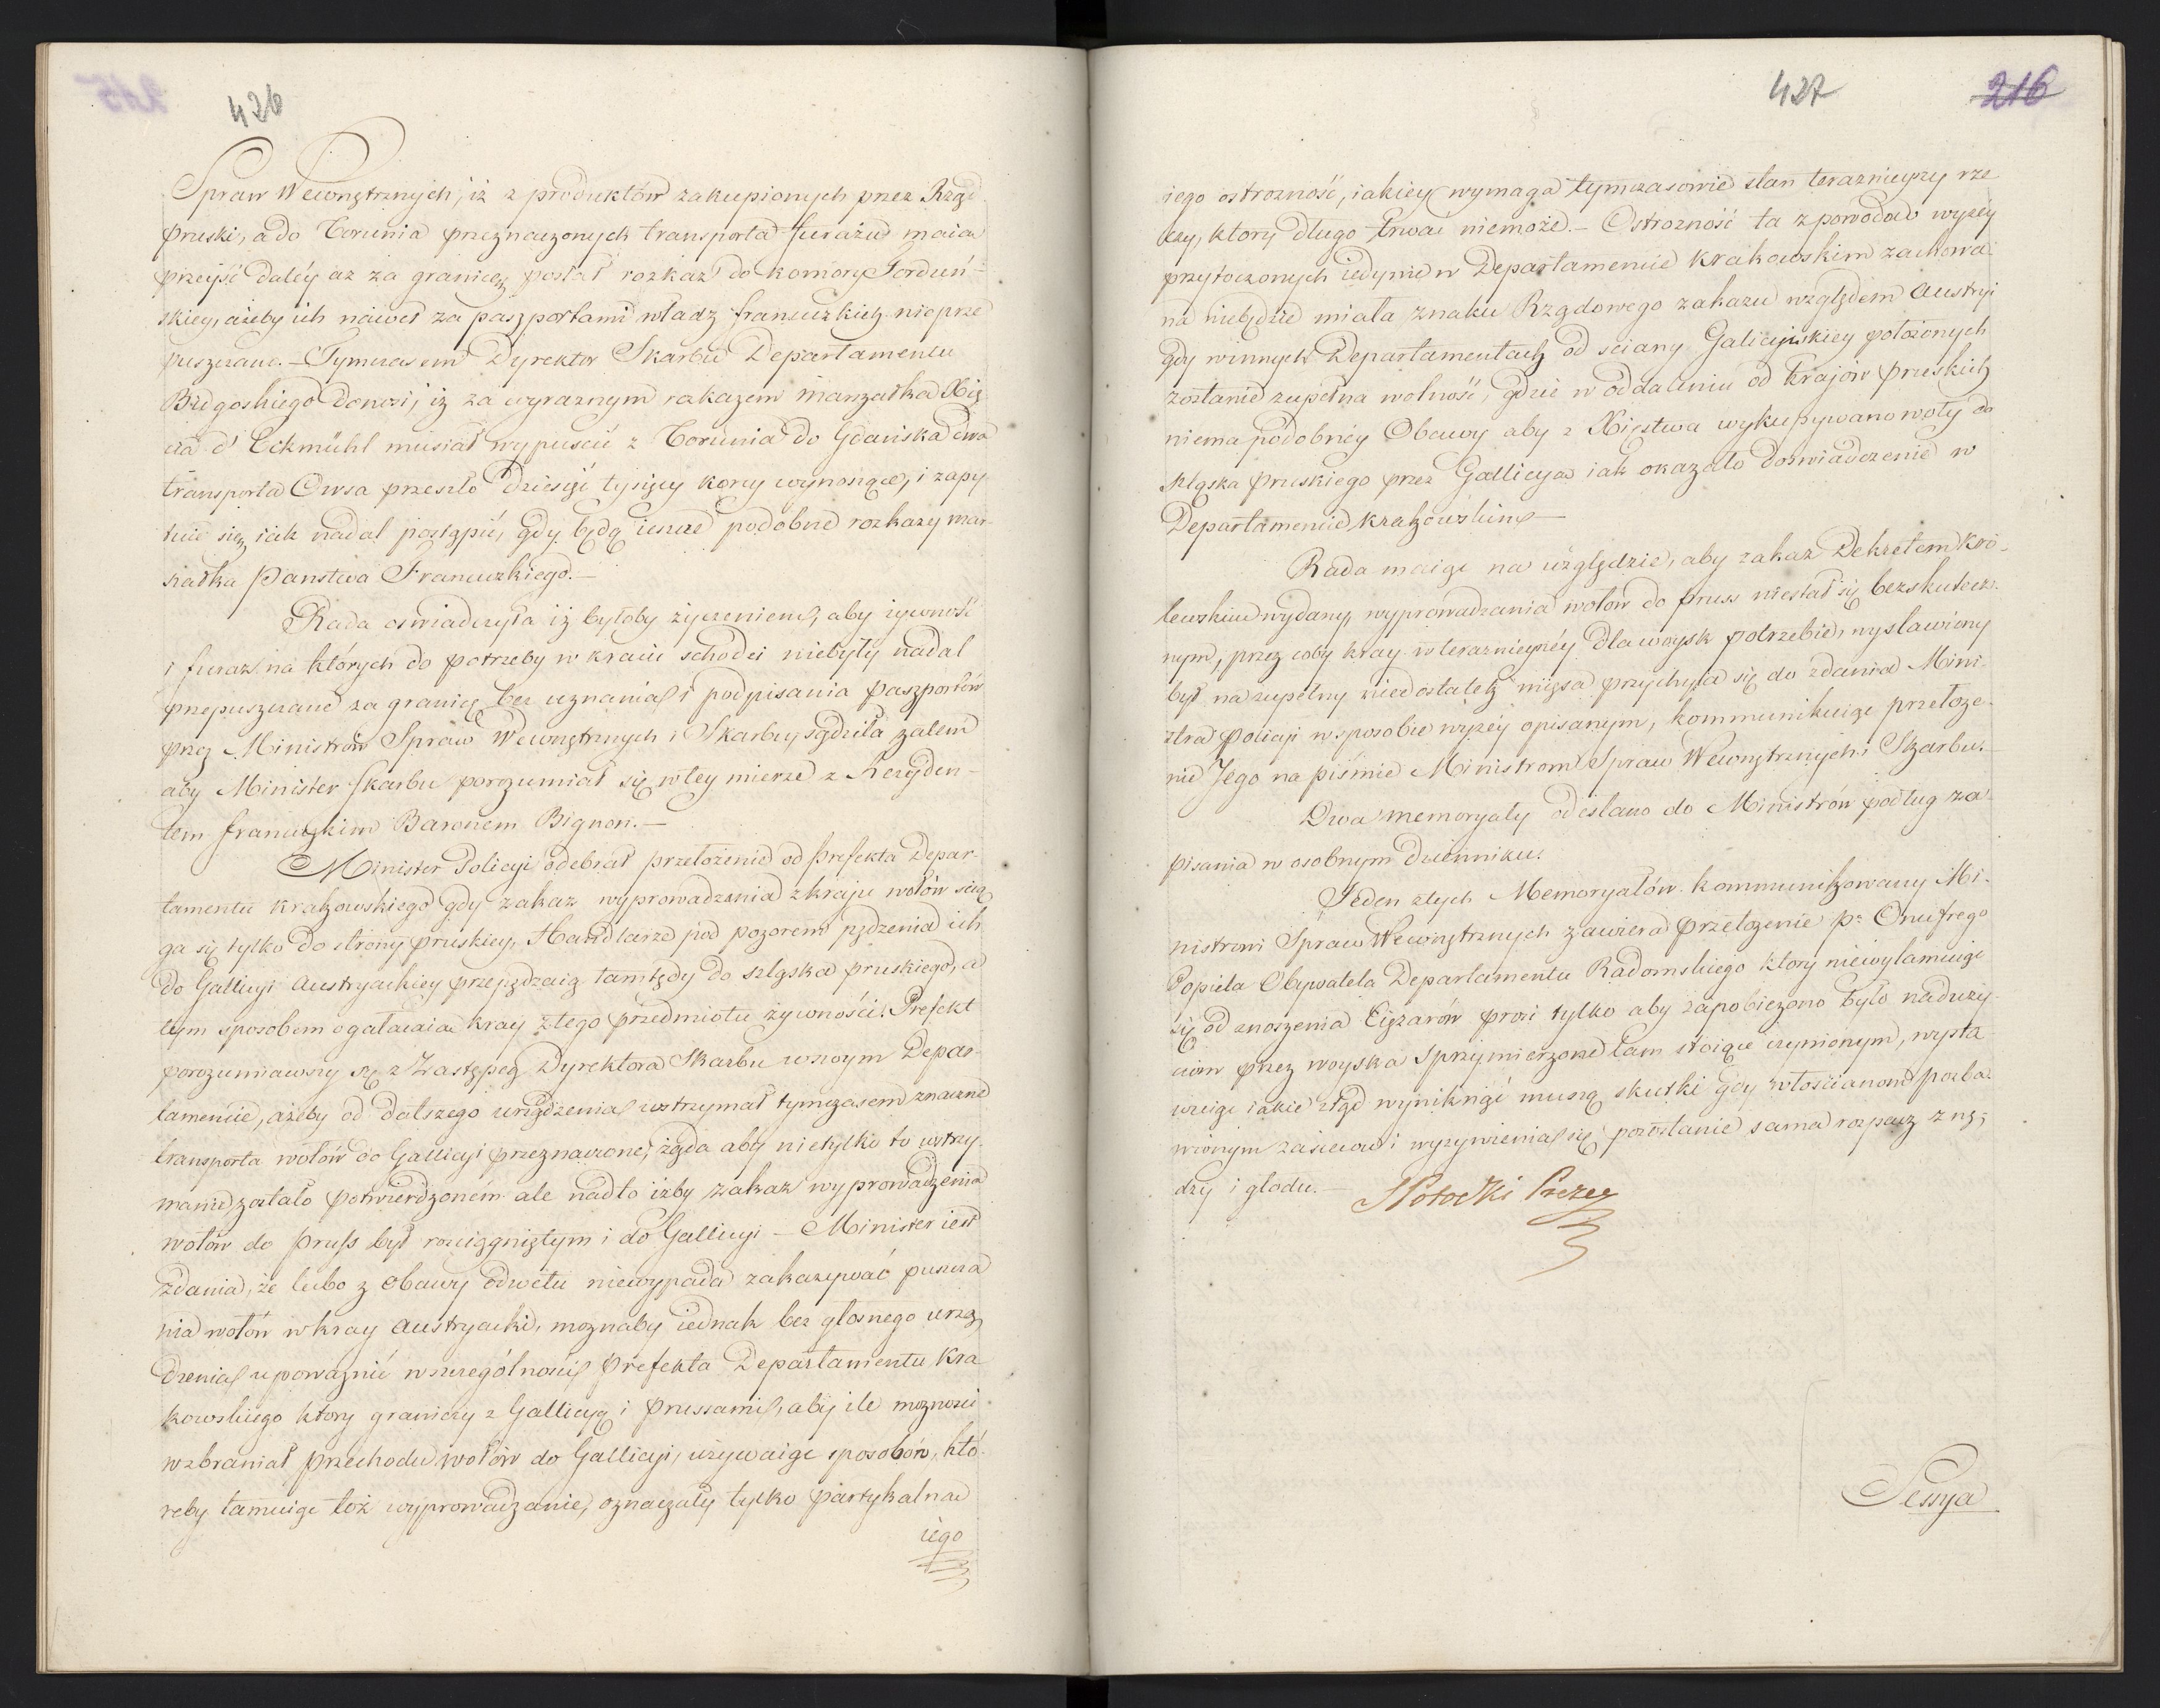 426
Spraw Wewnętrznych, iż z produktów zakupionych przez Rząd
Pruski, a do Torunia przeznaczonych transporta furażu maiąc
przeyść daléy aż za granicę posłał rozkaz do komory Forduń-
skiey, ażeby ich nawet za paszportami władz francuzkich nieprze
puszczano. – Tymczasem Dyrektor Skarbu Departamentu
Bydgoskiego donosi, iż za wyraznym rozkazem Marszałka Xię
cia d'Eckmühl musiał wypuścić z Torunia do Gdańska dwa
transporta Owsa przeszło dziesięć tysięcy korcy wynoszące, i zapy
tuie się iak nadal postąpić, gdy będą ieszcze podobne rozkazy mar-
szałka Panstwa Francuzkiego. –
Rada oswiadczyła iż byłoby życzeniem, aby żywność
i furaż na których do potrzeby w kraiu schodzi niebyły nadal
przepuszczane za granicę bez uznania i podpisania paszportów
przez Ministrów Spraw Wewnętrznych i Skarbu, sądziła zatem
aby Minister Skarbu porozumiał się w tey mierze z Rezyden-
tem francuzkim Baronem Bignon. –
Minister Policyi odebrał przełożenie od Prefekta Depar-
tamentu Krakowskiego gdy zakaz wyprowadzania z kraju wołów ścią
ga się tylko do strony pruskiey, Handlarze pod pozorem pędzenia ich
do Gallicyi Austryackiey przepędzaią tamtędy do szląska pruskiego, a
tym sposobem ogałacaią kray z tego przedmiotu żywności. Prefekt
porozumiawszy się z Zastępcą Dyrektora Skarbu w swoym Depar-
tamencie, ażeby od dalszego urządzenia wstrzymał tymczasem znaczne
transporta wołów do Gallicyi przeznaczone, żąda aby nietylko to wstrzy-
manie zostało potwierdzoném ale nadto iżby zakaz wyprowadzenia
wołów do Pruss był rozciągniętym i do Gallicyi – Minister iest
zdania, że lubo z obawy odwetu niewypada zakazywać puszcza
nia wołów w kray Austryacki, moznaby iednak bez głosnego urzą
dzenia upoważnić w szczególności Prefekta Departamentu Kra
kowskiego ktory graniczy z Gallicyą i Prussami, aby ile moznosci
wzbraniał przechodu wołów do Gallicyi, używaiąc sposobów, któ-
reby tamuiąc toż wyprowadzanie, oznaczały tylko partykalną
iego
427
216
iego ostrozność, iakiey wymaga tymczasowie stan teraznieyszy rze
czy, ktory długo trwać niemoże. – Ostrozność ta z powodów wyżéy
przytoczonych iedynie w Departamencie Krakowskim zachowa-
na niebędzie miała znaku Rządowego zakazu względem Austryi
gdy w innych Departamentach od sciany Galicyiskiey położonych
zostanie zupełna wolność, gdzie w oddaleniu od Krajów Pruskich
niema podobnéy Obawy aby z Xięstwa wykupywano woły do
szląska Pruskiego przez Gallicyą iak okazało doswiadczenie w
Departamencie Krakowskim –
Rada maiąc na względzie, aby zakaz Dekretem Kró-
lewskim wydany, wyprowadzania wołów do Pruss niestał się bezskutecz-
nym, przez coby kray w teraznieyszéy dla woysk potrzebie, wystawiony
był na zupełny niedostatek mięsa przychyla się do zdania Mini-
stra Policyi w sposobie wyżéy opisanym, kommunikuiąc przełoże-
nie Jego na piśmie Ministrom Spraw Wewnętrznych i Skarbu. –
Dwa memoryały odesłano do Ministrów podług za-
pisania w osobnym dzienniku.
Jeden z tych Memoryałów kommunikowany Mi-
nistrowi Spraw Wewnętrznych zawiera przełożenie P. Onufrego
Popiela Obywatela Departamentu Radomskiego ktory niewyłamuiąc
się od znoszenia Ciężarów prosi tylko aby zapobieżono było naduży-
ciom przez woyska sprzymierzone tam stoiące czynionym, wysta
wuiąc iakie ztąd wyniknąć muszą skutki gdy włościanom pozba-
wionym zasiewu i wyżywienia się pozostanie sama rozpacz z nę-
dzy i głodu. –
SPotocki Prezes
Sessya